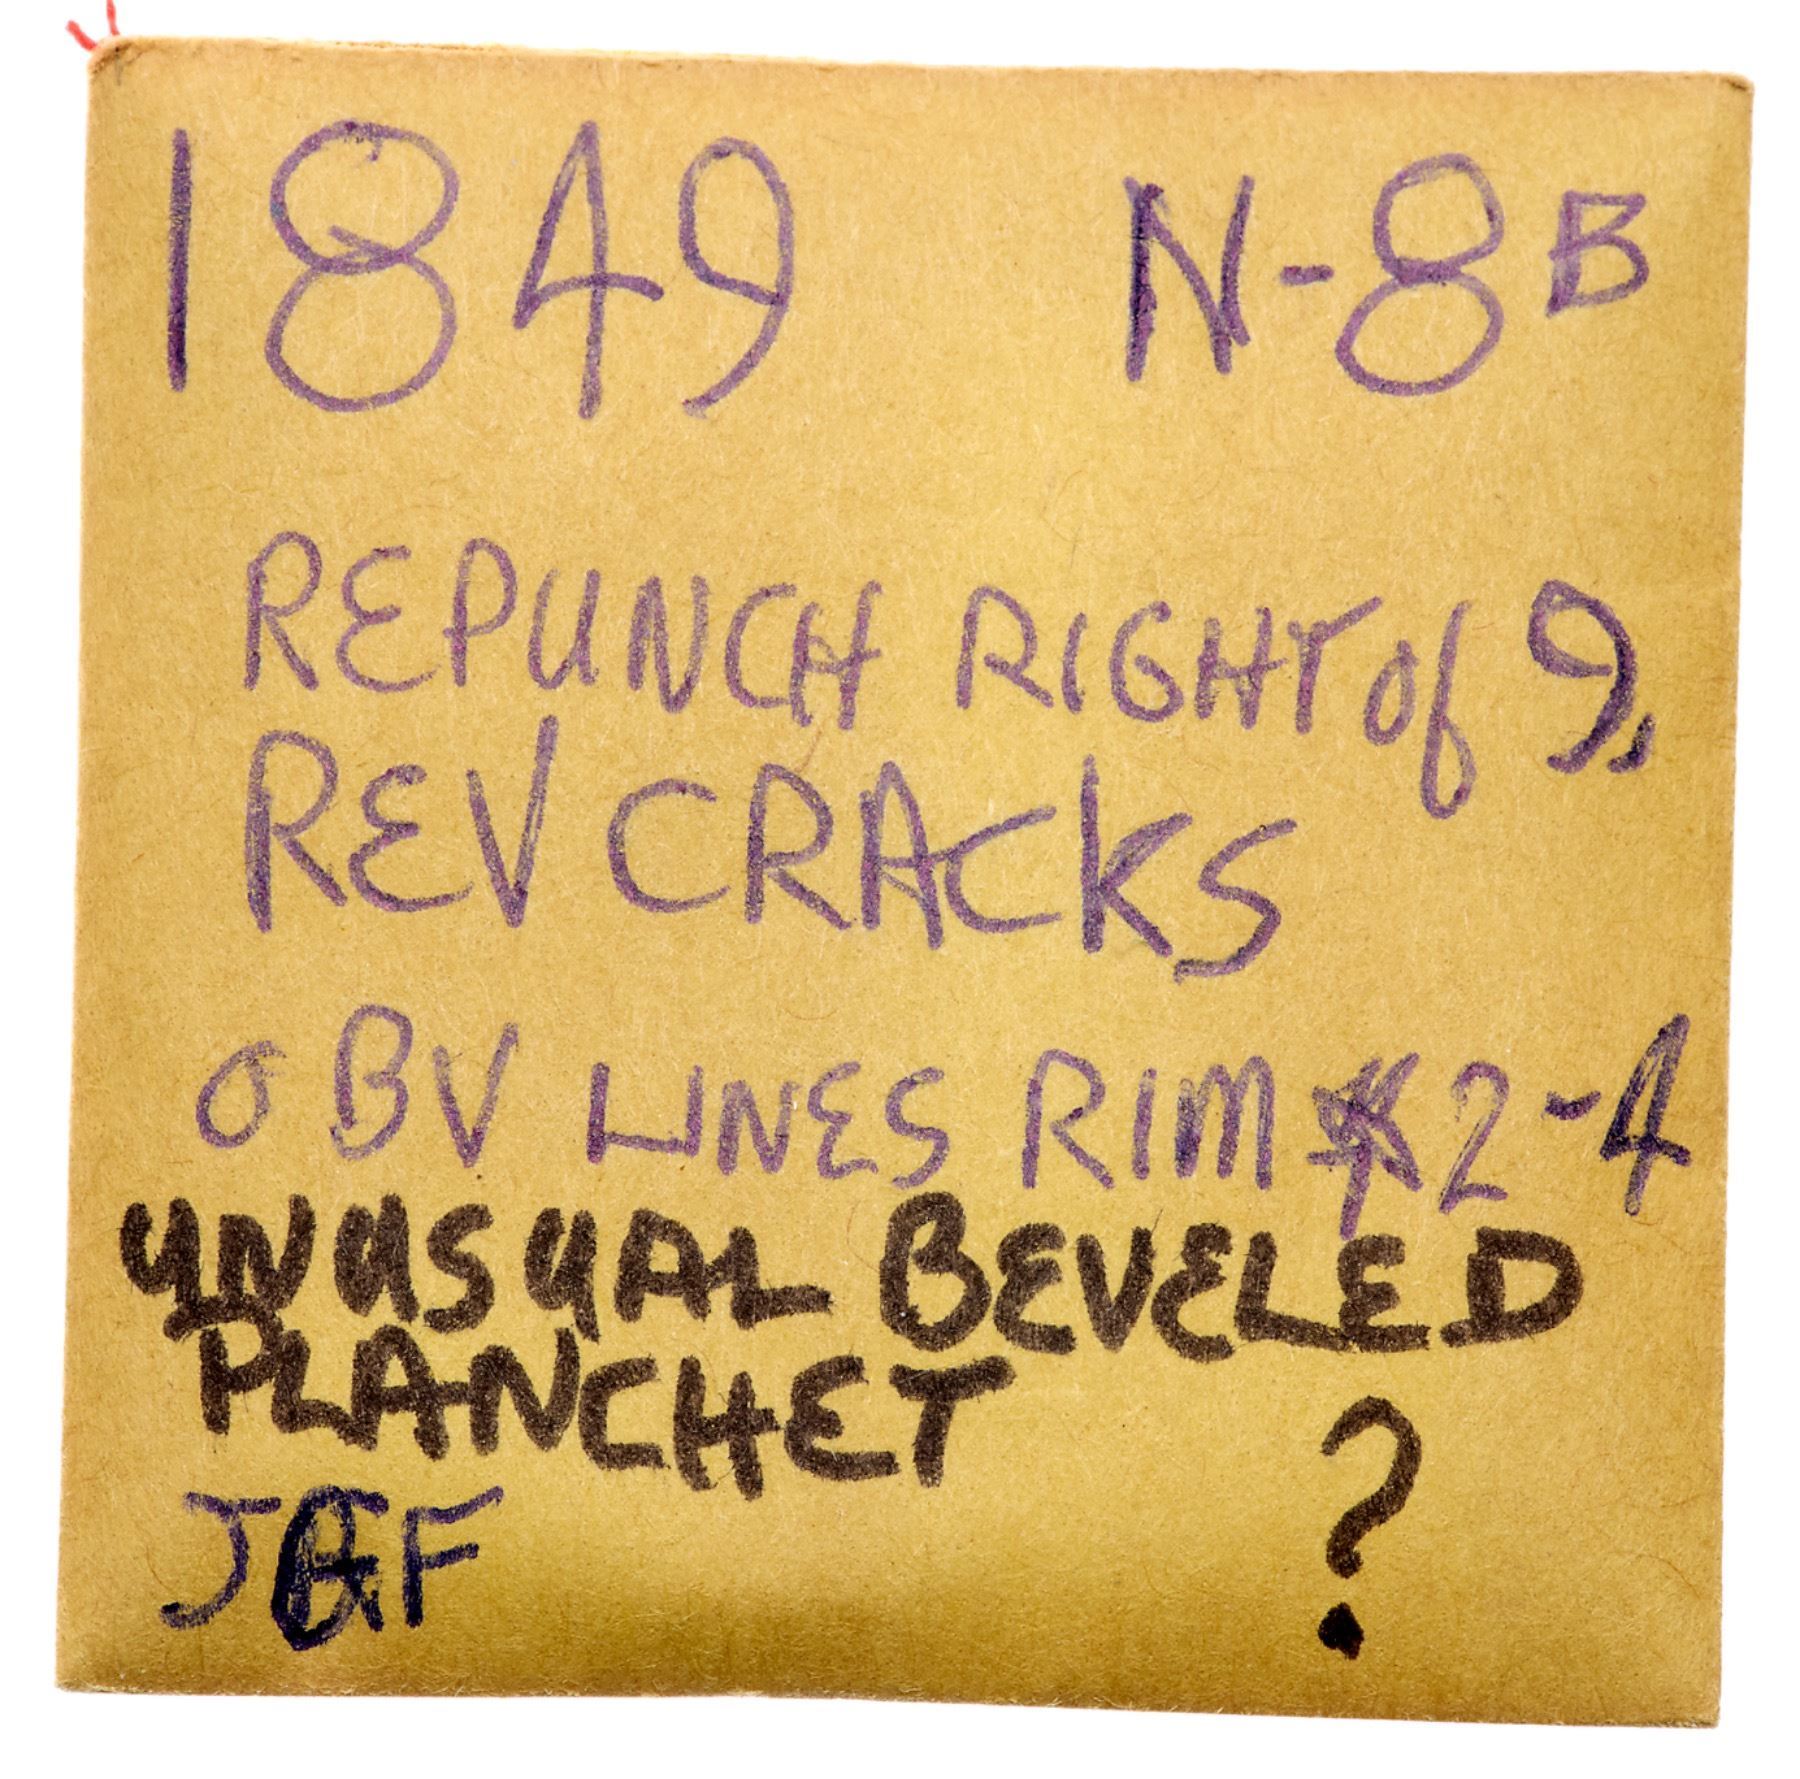 1849 N-8B
REPUNCH RIGHT of 9,
REV CRACKS
OBV LINES RIM *2-4
UNUSUAL BEVELED
PLANCHET ?
JGF